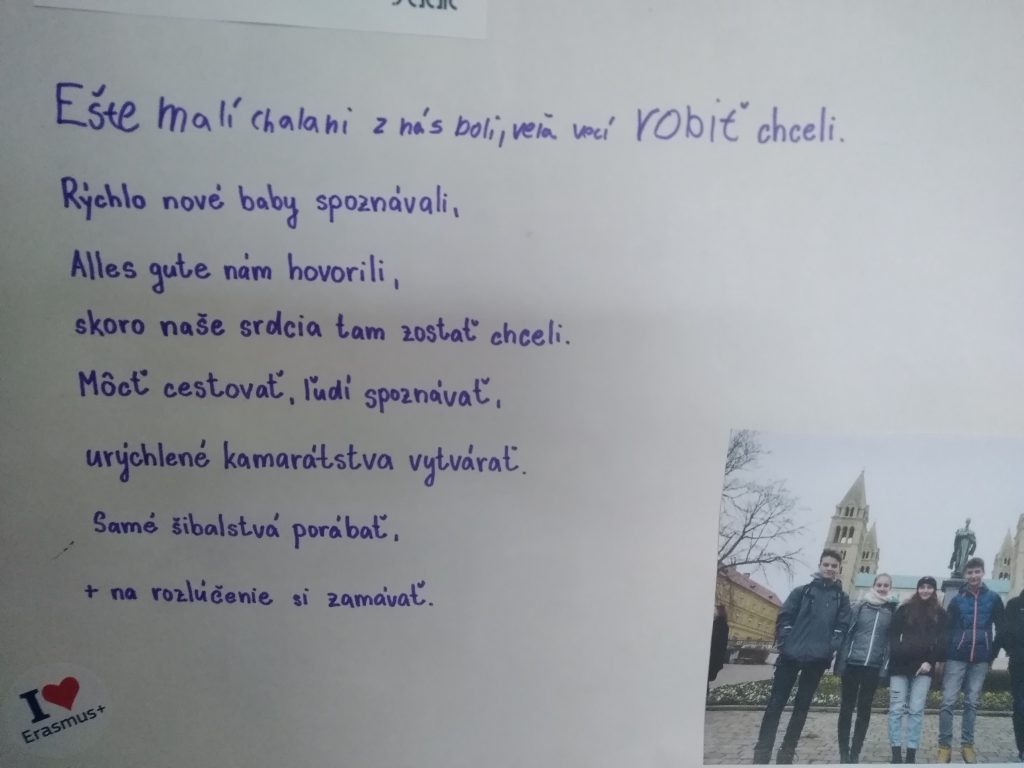 Ešte malí chalani z nás boli, veľa vecí robiť chceli.
Rýchlo nové baby spoznávali,
Alles gute nám hovorili,
skoro naše srdcia tam zostať chceli.
Môcť cestovať, ľudí spoznávať,
urýchlené kamarátstva vytvárať.
Samé šibalstvá porábať,
+ na rozlúčenie si zamávať.
I ♥
Erasmus+